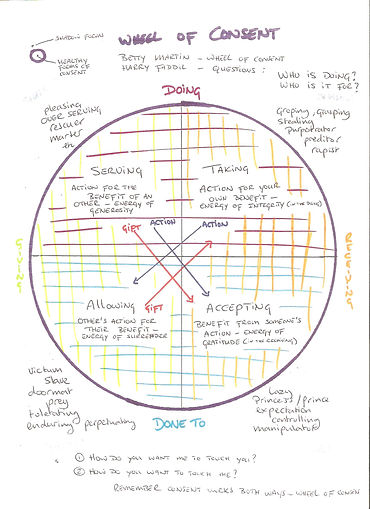 SHADOW FORMS
WHEEL OF CONSENT
HEALTHY FORMS OF CONSENT
BETTY MARTIN - WHEEL OF CONSENT
HARRY FADDIL - QUESTIONS :
WHO IS DOING?
WHO IS IT FOR?
DOING
pleasing
OVER SERVING
rescuer
Groping, gauping
stealing
perpetrator
preditor
rapist
SERVING
ACTION FOR THE
BENEFIT OF AN
OTHER - ENERGY OF
GENEROSITY
TAKING
ACTION FOR YOUR
OWN BENEFIT -
ENERGY OF INTEGRITY
GIFT
ACTION
ACTION
GIVING
RECEIVING
Allowing
OTHER'S ACTION FOR
THEIR BENEFIT -
ENERGY OF SURRENDER
GIFT
ACCEPTING
BENEFIT FROM SOMEONE'S
ACTION - ENERGY OF
GRATITUDE
victum
slave
doormat
prey
tolerating
enduring perpetuating
Lazy
Princess/prince
expectation
controlling
manipulator
DONE TO
① HOW DO YOU WANT ME TO TOUCH YOU?
② HOW DO YOU WANT TO TOUCH ME?
REMEMBER CONSENT WORKS BOTH WAYS - WHEEL OF CONSENT